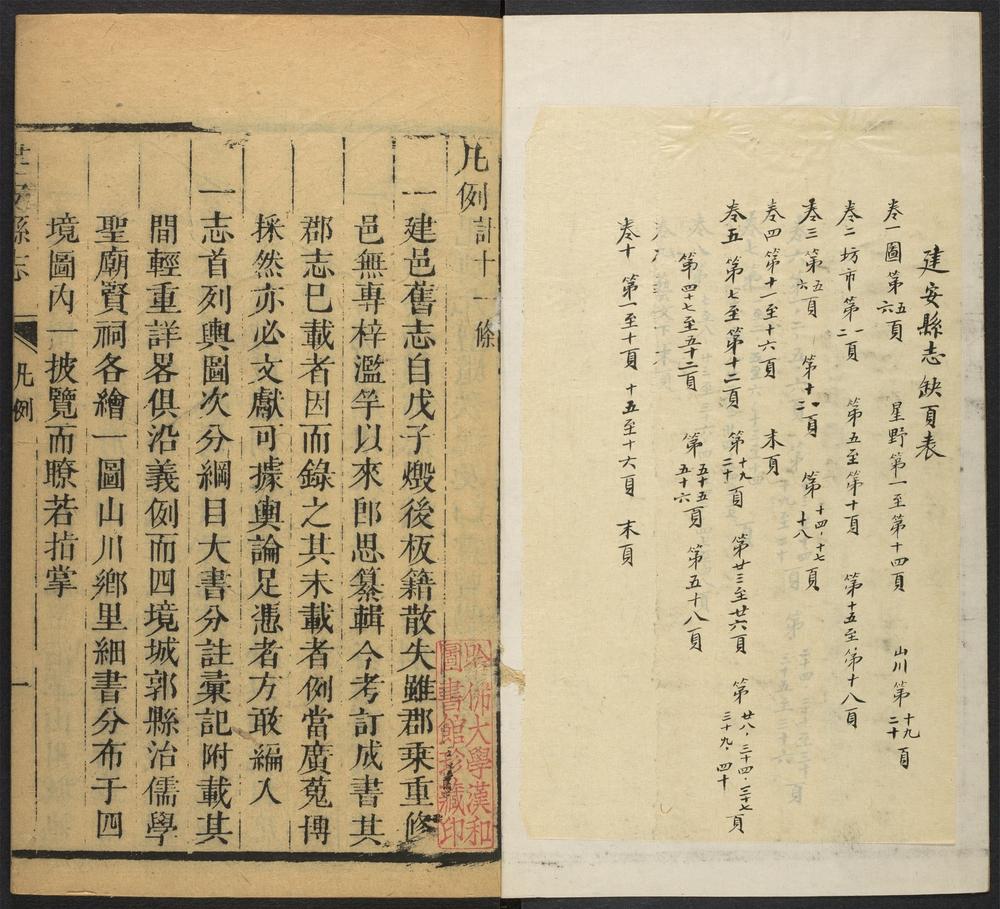 建安縣志缺頁表
卷一圖第五六頁 星野第一至第十四頁 山川第十九二十頁
卷二坊市第一二頁 第五至第十頁 第十五至第十八頁
卷三第五六頁 第十一二頁 第十四·十七十八頁
卷四第十一至十六頁 末頁
卷五 第七至第十二頁 第十九二十頁 第廿三至廿六頁 第廿八·三十四·三十七三十九·四十頁
第四十七至五十二頁 第五十五五十六頁 第五十八頁
卷十 第一至十頁 十五至十六頁 末頁
凡例計十一條
一建邑舊志自戊子燬後板籍散失雖郡乘重修
邑無專梓濫竽以來卽思纂輯今考訂成書其
郡志已載者因而錄之其未載者例當廣蒐博
採然亦必文獻可據輿論足憑者方敢編入
一志首列輿圖次分綱目大書分註彙記附載其
間輕重詳畧俱沿義例而四境城郭縣治儒學
聖廟賢祠各繪一圖山川鄉里細書分布于四
境圖內一披覽而瞭若指掌
縣志
凡例
一
哈佛大學漢和
圖書館珍藏印